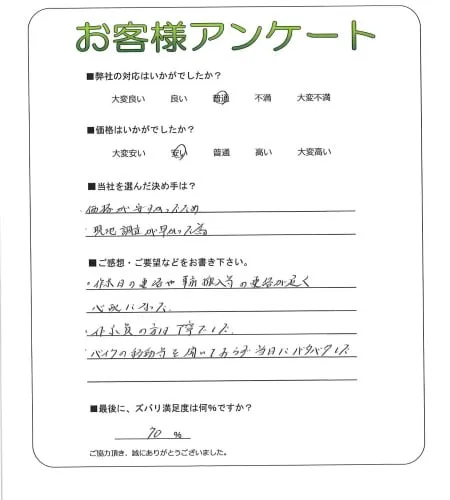 お客様アンケート
■弊社の対応はいかがでしたか？
大変良い 良い 普通 不満 大変不満
■価格はいかがでしたか？
大変安い 安い 普通 高い 大変高い
■当社を選んだ決め手は？
・価格が安かったため
・現地調査が早かった為
■ご感想・ご要望などをお書き下さい。
・作業日の連絡や事前搬入等の連絡が遅く
心配になった
・作業員の方は丁寧でした
・バイクの移動等を聞いておらず当日にバタバタした
■最後に、ズバリ満足度は何%ですか？
70 %
ご協力頂き、誠にありがとうございました。